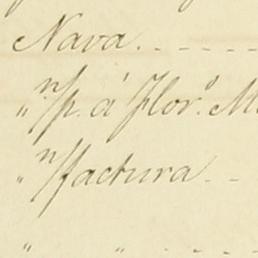 Nava. - - - -
" n/p. á Flor.º M
" n/factura. -
" " - - -